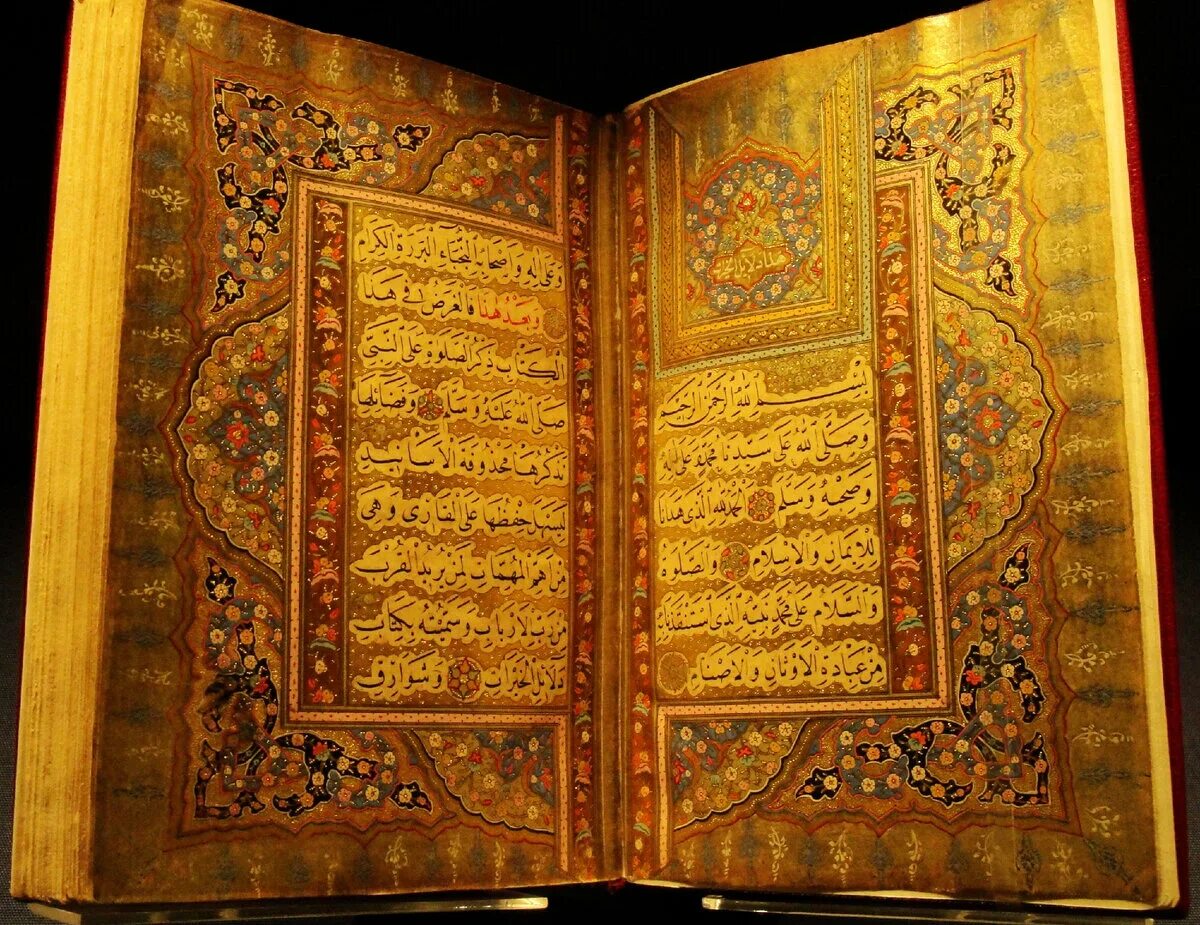 هذا دلائل الخيرات
بِسْمِ اللهِ الرَّحْمٰنِ الرَّحِيمِ
وَصَلَّى اللهُ عَلَى سَيِّدِنَا مُحَمَّدٍ وَعَلَى اٰلِهِ
وَصَحْبِهِ وَسَلَّمَ اَلْحَمْدُ لِلّٰهِ الَّذِى هَدَانَا
لِلْاِيمَانِ وَالْاِسْلَامِ وَالصَّلٰوةُ
وَالسَّلَامُ عَلَى مُحَمَّدٍ نَبِيِّهِ الَّذِى اسْتَنْقَذَنَا بِهِ
مِنْ عِبَادَةِ الْاَوْثَانِ وَالْاَصْنَامِ
وَعَلَى اٰلِهِ وَاَصْحَابِهِ النُّجَبَاءِ الْبَرَرَةِ الْكِرَامِ
وَبَعْدَ هٰذَا فَالْغَرَضُ فِى هٰذَا
الْكِتَابِ ذِكْرُ الصَّلٰوةِ عَلَى النَّبِىِّ
صَلَّى اللهُ عَلَيْهِ وَسَلَّمَ وَفَضَائِلِهَا
نَذْكُرُهَا مَحْذُوفَةَ الْاَسَانِيدِ
لِيَسْهُلَ حِفْظُهَا عَلَى الْقَارِى وَهِىَ
مِنْ اَهَمِّ الْمُهِمَّاتِ لِمَنْ يُرِيدُ الْقُرْبَ
مِنْ رَبِّ الْاَرْبَابِ وَسَمَّيْتُهُ بِكِتَابِ
دَلَائِلِ الْخَيْرَاتِ وَشَوَارِقِ